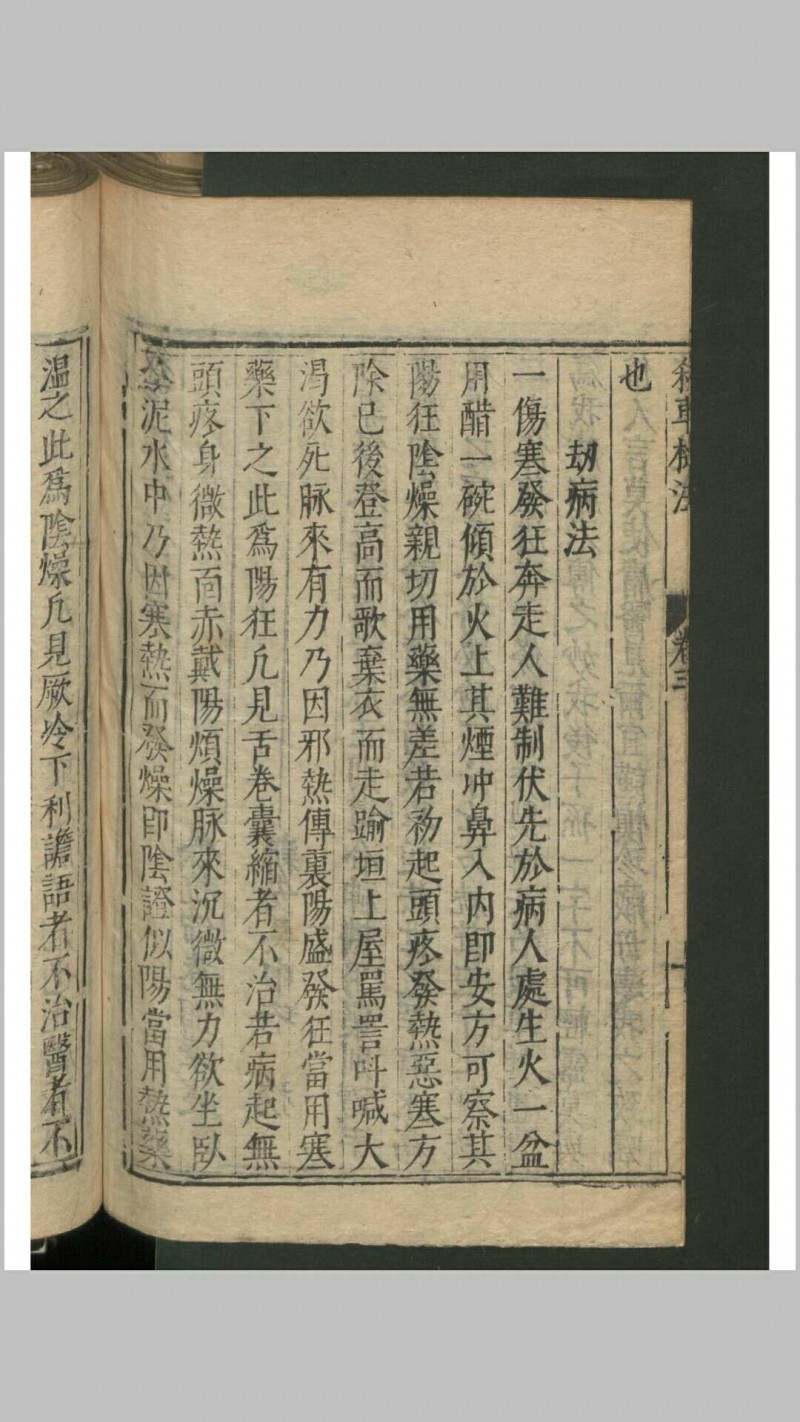 卷三
也
劫病法
一傷寒發狂奔走人難制伏先於病人處生火一盆
用醋一碗傾於火上其煙冲鼻入内即安方可察其
陽狂陰燥親切用藥無差若初起頭疼發熱惡寒方
除已後登高而歌棄衣而走踰垣上屋罵詈呌喊大
渴欲死脉來有力乃因邪熱傳裏陽盛發狂當用寒
藥下之此爲陽狂凢見舌卷囊縮者不治若病起無
頭疼身微熱面赤戴陽煩燥脉來沉微無力欲坐卧
泥水中乃因寒熱而發燥即陰證似陽當用熱藥
温之此爲陰燥凢見厥冷下利譫語者不治醫者不